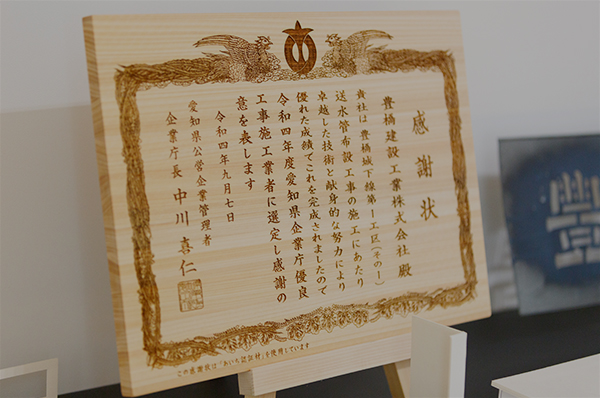 感謝状
豊橋建設工業株式会社殿
貴社は豊橋城下線第1工区(その1)
送水管布設工事の施工にあたり
卓越した技術と献身的な努力により
優れた成績でこれを完成されましたので
令和四年度愛知県企業庁優良
工事施工業者に選定し感謝の
意を表します
令和四年九月七日
愛知県公営企業管理者
企業庁長 中川喜仁
この感謝状は「あいち認証材」を使用しています